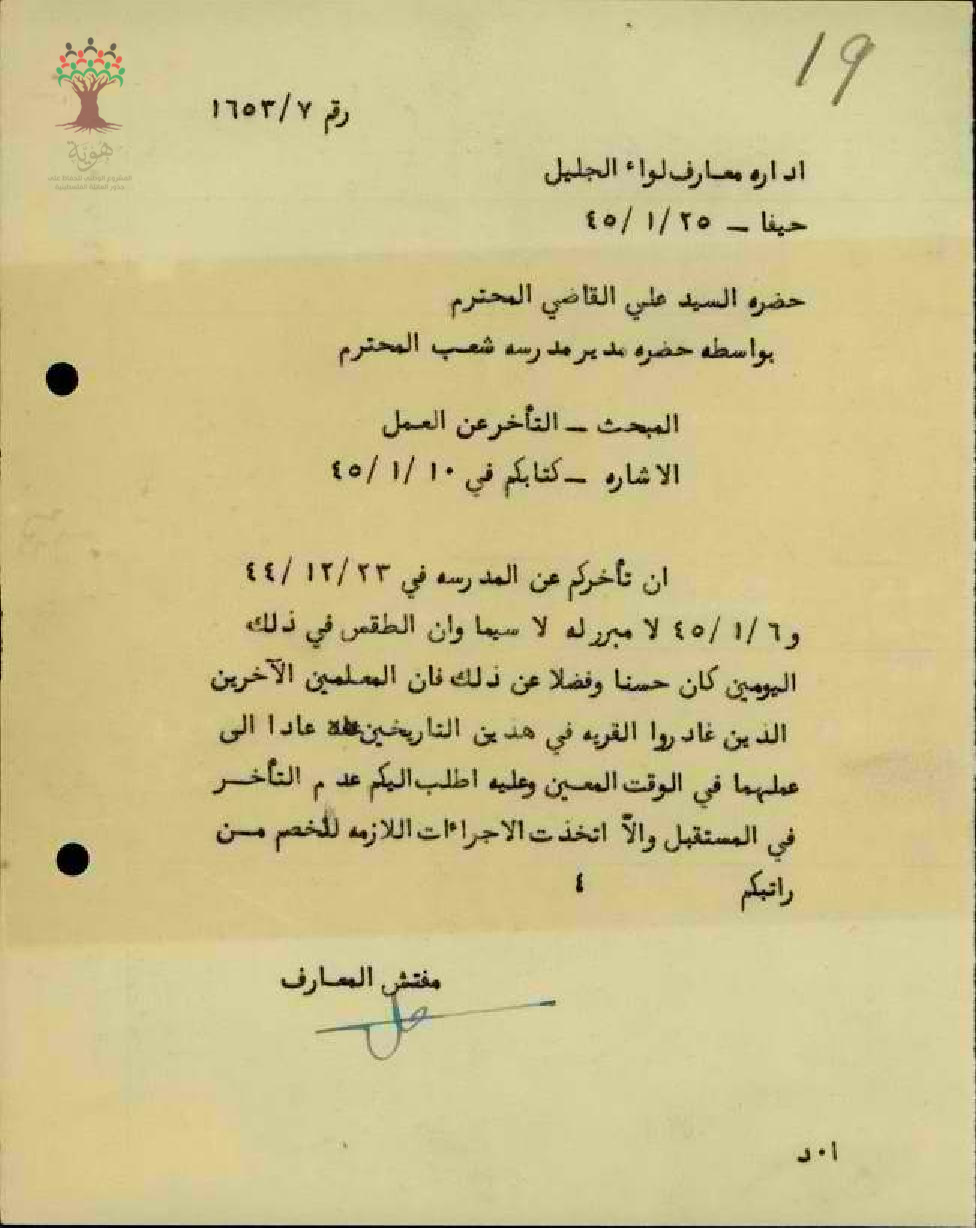 19
هوية
المشروع الوطني للحفاظ على
جذور العائلة الفلسطينية
رقم ١٦٥٣/٧
اداره معارف لواء الجليل
حيفا – ٤٥/١/٢٥
حضره السيد علي القاضي المحترم
بواسطه حضره مدير مدرسه شعب المحترم
المبحث – التأخر عن العمل
الاشاره – كتابكم في ٤٥/١/١٠
ان تأخركم عن المدرسه في ٤٤/١٢/٢٣
و٤٥/١/٦ لا مبرر له لا سيما وان الطقس في ذلك
اليومين كان حسنا وفضلا عن ذلك فان المعلمين الآخرين
الذين غادروا القريه في هذين التاريخين عادا الى
عملهما في الوقت المعين وعليه اطلب اليكم عدم التأخر
في المستقبل والاّ اتخذت الاجراءات اللازمه للخصم من
راتبكم ٤
مفتش المعارف
ا٠د